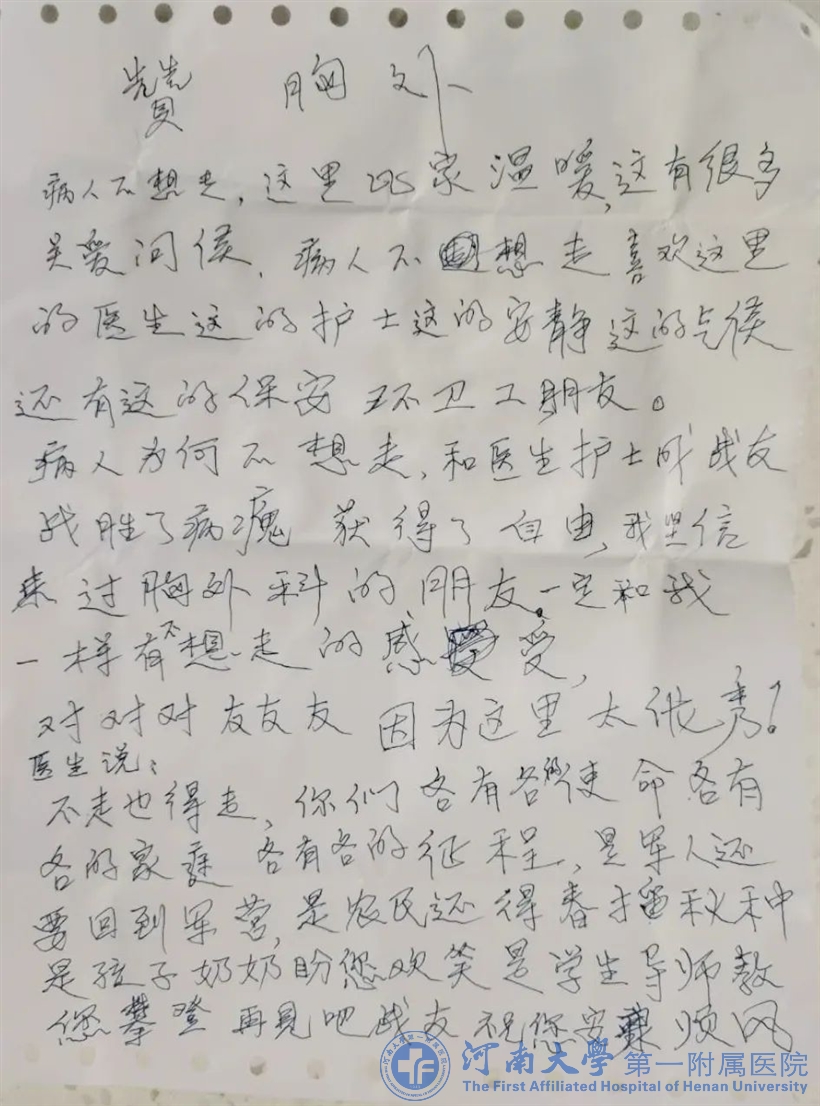 赞 胸外
病人不想走，这里比家温暖，这有很多
关爱问侯，病人不想走喜欢这里
的医生这的护士这的安静这的气侯
还有这的保安环卫工朋友。
病人为何不想走，和医生护士成战友
战胜了病魔 获得了自由，我坚信
来过胸外科的朋友，一定和我
一样有不想走的感受，
对对对友友友 因为这里太优秀！
医生说：
不走也得走，你们各有各的使命各有
各的家庭 各有各的征程，是军人还
要回到军营，是农民还得春播秋种
是孩子奶奶盼您欢笑是学生导师教
您攀登 再见吧战友 祝您安康顺风
河南大学第一附属医院
The First Affiliated Hospital of Henan University